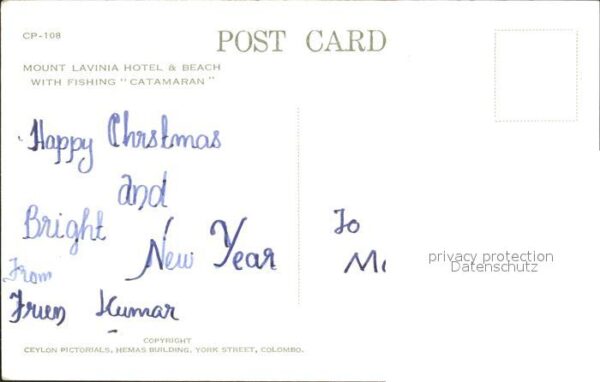 CP-108
POST CARD
MOUNT LAVINIA HOTEL & BEACH
WITH FISHING "CATAMARAN"
Happy Chrstmas
and
Bright
New Year
From
Frien Kumar
To
privacy protection
Datenschutz
COPYRIGHT
CEYLON PICTORIALS, HEMAS BUILDING, YORK STREET, COLOMBO.